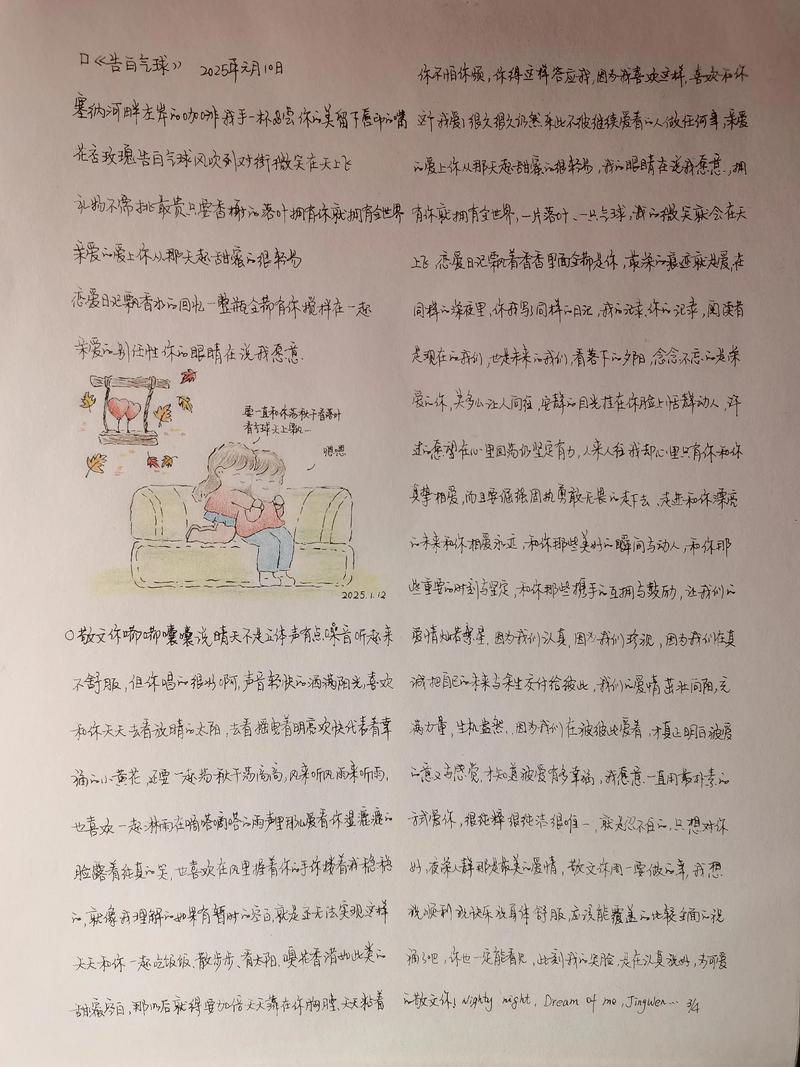 口《告白气球》 2025年元月10日
塞纳河畔左岸的咖啡我手一杯品尝你的美留下唇印的嘴
花店玫瑰告白气球风吹到对街微笑在天上飞
礼物不需挑最贵只要香榭的落叶拥有你就拥有全世界
亲爱的爱上你从那天起甜蜜的很轻易
恋爱日记飘香水的回忆一整瓶全都有你搅拌在一起
亲爱的别任性你的眼睛在说我愿意
要一直和你荡秋千看落叶
看气球天上飘…
嗯嗯
2025.1.12
○散文你嘟嘟囔囔说晴天不是立体声有点噪音听起来
不舒服,但你唱的很好啊,声音轻快的洒满阳光,喜欢
和你天天去看放晴的太阳,去看摇曳着明亮欢快代表着幸
福的小黄花,还要一起荡秋千荡高高,风来听风雨来听雨,
也喜欢一起淋雨在嘀嗒嘀嗒的雨声里那么爱看你湿漉漉的
脸露着纯真的笑,也喜欢在风里握着你的手你搂着我稳稳
的,就像我理解的如果有暂时的空白,就是还无法实现这样
天天和你一起吃饭饭、散步步、看太阳、嗅花香诸如此类的
甜蜜空白,那以后就得要加倍天天靠在你胸膛、天天粘着
你不怕你烦,你得这样答应我,因为我喜欢这样,喜欢和你
这个我爱了很久很久仍然乐此不疲继续爱着的人做任何事,亲爱
的爱上你从那天起甜蜜的很轻易,我的眼睛在说我愿意,拥
有你就拥有全世界,一片落叶、一只气球,我的微笑就会在天
上飞,恋爱日记飘着香香里面全都是你,最深的痕迹就是爱,在
同样的深夜里,你我写了同样的日记,我的记录、你的记录,阅读者
是现在的我们,也是未来的我们,看落下的夕阳,念念不忘的是亲
爱的你,笑多么让人向往,安静的目光挂在你脸上恬静动人,许
过的愿望在心里回荡仍坚定有力,人来人往我却心里只有你和你
真挚相爱,而且要倔强固执勇敢无畏的走下去、走进和你漂亮
的未来和你相爱永远,和你那些美好的瞬间与动人,和你那
些重要的时刻与坚定,和你那些携手的互拥与鼓励,让我们的
爱情灿若繁星,因为我们认真,因为我们珍视,因为我们在真
诚把自己的未来与余生交付给彼此,我们的爱情茁壮向阳,充
满力量,生机盎然,因为我们在被彼此爱着,才真正明白被爱
的意义与感觉,才知道被爱有多幸福,我愿意一直用最朴素的
方式爱你,很纯粹很纯洁很唯一,就是忍不住的,只想对你
好,夜深人静那是最美的爱情,散文你周一要做的事,我想
祝顺利祝快乐祝身体舒服,应该能覆盖的比较全面的祝
福了吧,你也一定能看见,此刻我的笑脸,是在认真说好,为可爱
的散文你! Nighty night, Dream of me, JingWen… 3/4